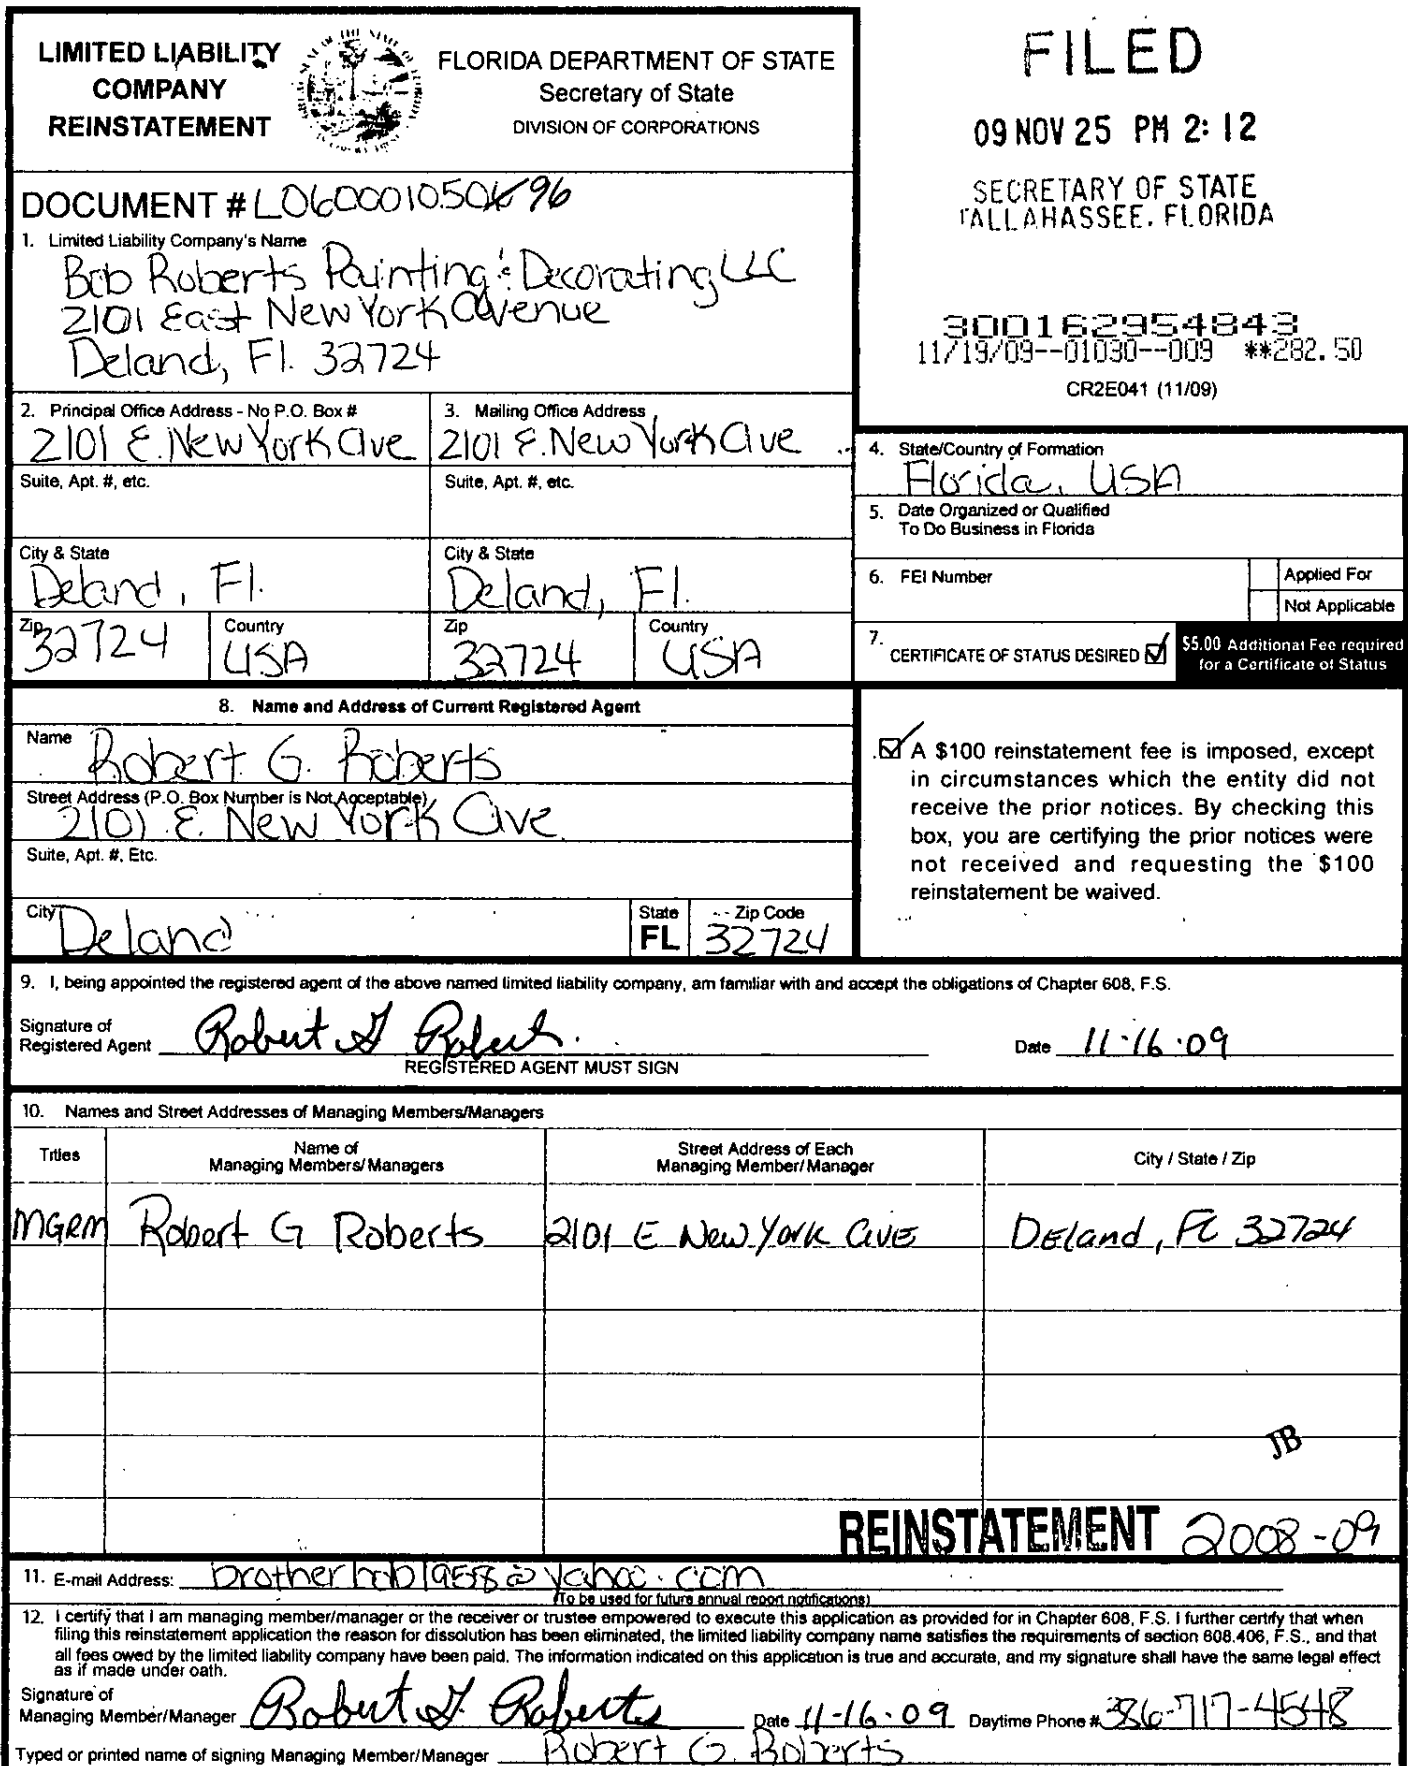 LIMITED LIABILITY
COMPANY
REINSTATEMENT
FLORIDA DEPARTMENT OF STATE
Secretary of State
DIVISION OF CORPORATIONS
FILED
09 NOV 25 PM 2:12
SECRETARY OF STATE
TALLAHASSEE, FLORIDA
DOCUMENT #
1. Limited Liability Company's Name
Bob Roberts Painting & Decorating LLC
2101 East New York Avenue
Deland, Fl. 32724
300162954843
11/19/09--01030--009 **282.50
CR2E041 (11/09)
2. Principal Office Address - No P.O. Box #
2101 E. New York Ave
3. Mailing Office Address
2101 E. New York Ave
Suite, Apt. #, etc.
Suite, Apt. #, etc.
City & State
Deland, Fl.
City & State
Deland, Fl.
Zip
32724
Country
USA
Zip
32724
Country
USA
4. State/Country of Formation
Florida, USA
5. Date Organized or Qualified
To Do Business in Florida
6. FEI Number
Applied For
Not Applicable
7. CERTIFICATE OF STATUS DESIRED
$5.00 Additional Fee required
for a Certificate of Status
8. Name and Address of Current Registered Agent
Name
Robert G. Roberts
Street Address (P.O. Box Number is Not Acceptable)
2101 E New York Ave
Suite, Apt. #, Etc.
City
Deland
State
FL
Zip Code
32724
A $100 reinstatement fee is imposed, except
in circumstances which the entity did not
receive the prior notices. By checking this
box, you are certifying the prior notices were
not received and requesting the $100
reinstatement be waived.
9. I, being appointed the registered agent of the above named limited liability company, am familiar with and accept the obligations of Chapter 608, F.S.
Signature of
Registered Agent Robert G Roberts
Date 11-16-09
REGISTERED AGENT MUST SIGN
10. Names and Street Addresses of Managing Members/Managers
Titles
Name of
Managing Members/Managers
Street Address of Each
Managing Member/Manager
City / State / Zip
MGRM Robert G Roberts 2101 E New York Ave Deland, FL 32724
JB
REINSTATEMENT 2008-09
11. E-mail Address: brotherbob1958@yahoo.com
(To be used for future annual report notifications)
12. I certify that I am managing member/manager or the receiver or trustee empowered to execute this application as provided for in Chapter 608, F.S. I further certify that when
filing this reinstatement application the reason for dissolution has been eliminated, the limited liability company name satisfies the requirements of section 608.406, F.S., and that
all fees owed by the limited liability company have been paid. The information indicated on this application is true and accurate, and my signature shall have the same legal effect
as if made under oath.
Signature of
Managing Member/Manager Robert G. Roberts Date 11-16-09 Daytime Phone # 386-717-4548
Typed or printed name of signing Managing Member/Manager Robert G. Roberts